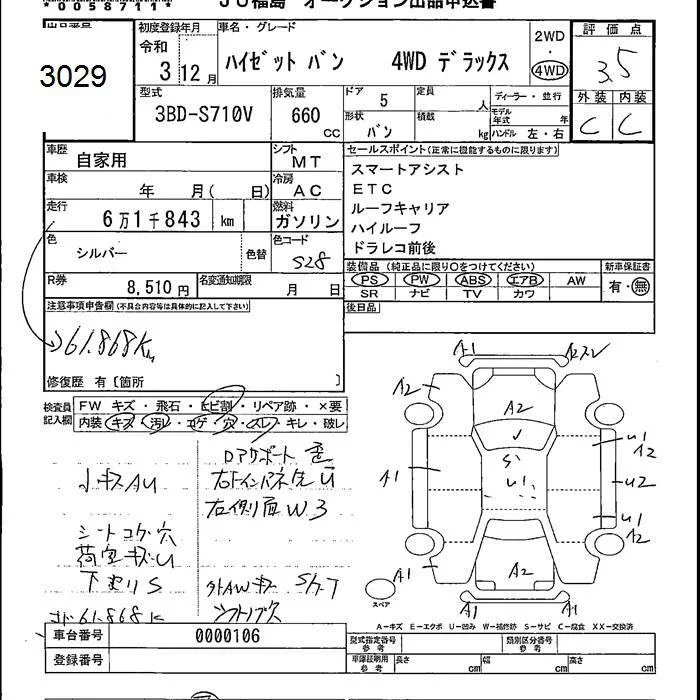 *00587111*
JU福島 オークション出品申込書
出品番号
3029
初度登録年月
令和
3 12月
車名・グレード
ハイゼット バン 4WD デラックス
2WD
・
4WD
評価点
3.5
外装 内装
C C
型式
3BD-S710V
排気量
660
CC
ドア
5
形状
バン
定員
人
積載
kg
ディーラー・並行
モデル年式
年
ハンドル 左・右
車歴
自家用
シフト
MT
車検
年 月( 日)
冷房
AC
走行
6万1千843 km
燃料
ガソリン
色
シルバー
色替
色コード
S28
R券
8,510円
名変通知期限
月 日
セールスポイント(正常に機能するものに限ります)
スマートアシスト
ETC
ルーフキャリア
ハイルーフ
ドラレコ前後
装備品(純正品に限り○をつけてください)
PS PW ABS エアB AW
SR ナビ TV カワ
新車保証書
有・無
後日品
注意事項申告欄(不具合内容等は具体的に記入して下さい)
61.868Km
修復歴 有〔箇所 〕
検査員記入欄
FW キズ・飛石・ヒビ割・リペア跡・×要
内装 キズ・汚レ・コゲ・穴・スレ・キレ・破レ
小キズAU
シートコゲ穴
荷室キズU
下廻りS
61.868K
右側面W3
A1
A2
A2
A1
A2
U1
A2
U2
U1
A2
A1
A2
A1
A1
スペア
A-キズ E-エクボ U-凹み W-補修跡 S-サビ C-腐食 XX-交換済
車台番号
0000106
登録番号
型式指定番号
参考
類別区分番号
参考
車庫証明用
参考
長さ
cm
幅
cm
高さ
cm